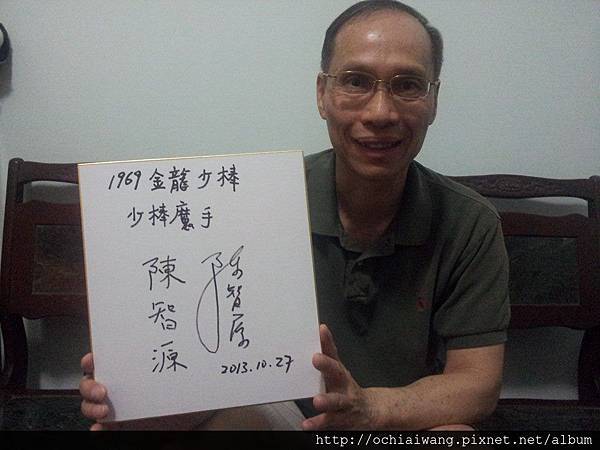 1969 金龍少棒
少棒魔手
陳智源
陳智源
2013.10.27
http://ochiaiwang.pixnet.net/album